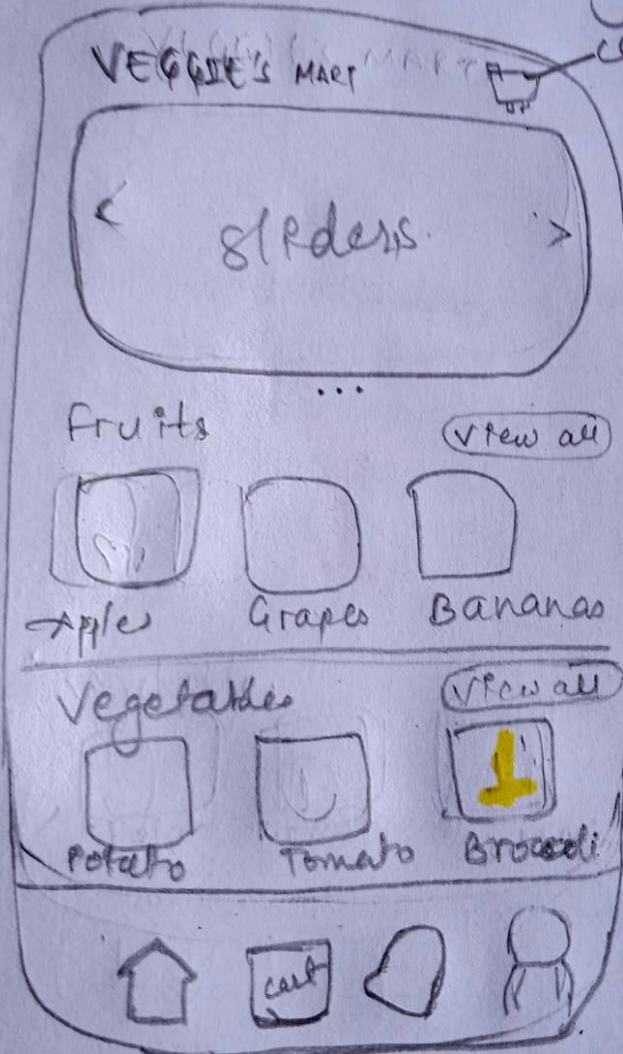 VEGGIE'S MART
< sliders >
...
Fruits View all
Apples Grapes Bananas
Vegetables View all
Potato Tomato Broccoli
cart